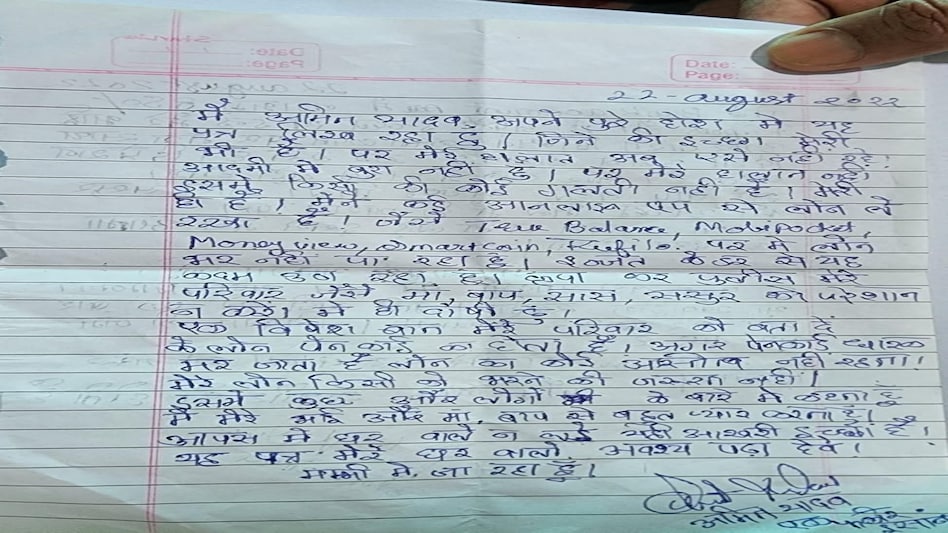 Date:
Page:
22 - august 2022
में अमित यादव, अपने पुरे होश में यह
पत्र लिख रहा हूँ। जिने की इच्छा मेरी
भी है। पर मेरे हालात अब एसे नही रहे।
आदमी में बुरा नही हु। पर मेरे हालात नही।
इसमे किसी की कोई गलती नही है। मेरी
ही है। मैने कई आनलाइन एप से लोन ले
रखा है। जैसे True Balance, Mobipocket,
Moneyview, Smartcoin, Rufilo. पर में लोन
भर नही पा रहा हूँ। इज्जत के डर से यह
कदम उठा रहा हूँ। कृपा कर पुलीस मेरे
परिवार जैसे मां, बाप, सास, ससुर को परेशान
न करे। में ही दोषी हूँ।
एक विशेष बात मेरे परिवार को बता दे
के लोन पेन कार्ड का होता है। अगर पेनकार्ड धारक
मर जाता है लोन का कोई अस्तीत्व नही रहता।
मेरे लोन किसी को भरने की जरूरत नही।
इसमें कुछ और लोगो के बारे में कहता हूँ
में मेरे भाई और मां, बाप से बहुत प्यार करता हूँ।
आपस में घर वाले न लडे यही आखरी इच्छा है।
यह पत्र मेरे घर वालो. अवश्य पढ़ा देवे।
मम्मी में. जा रहा हूँ।
अमित यादव